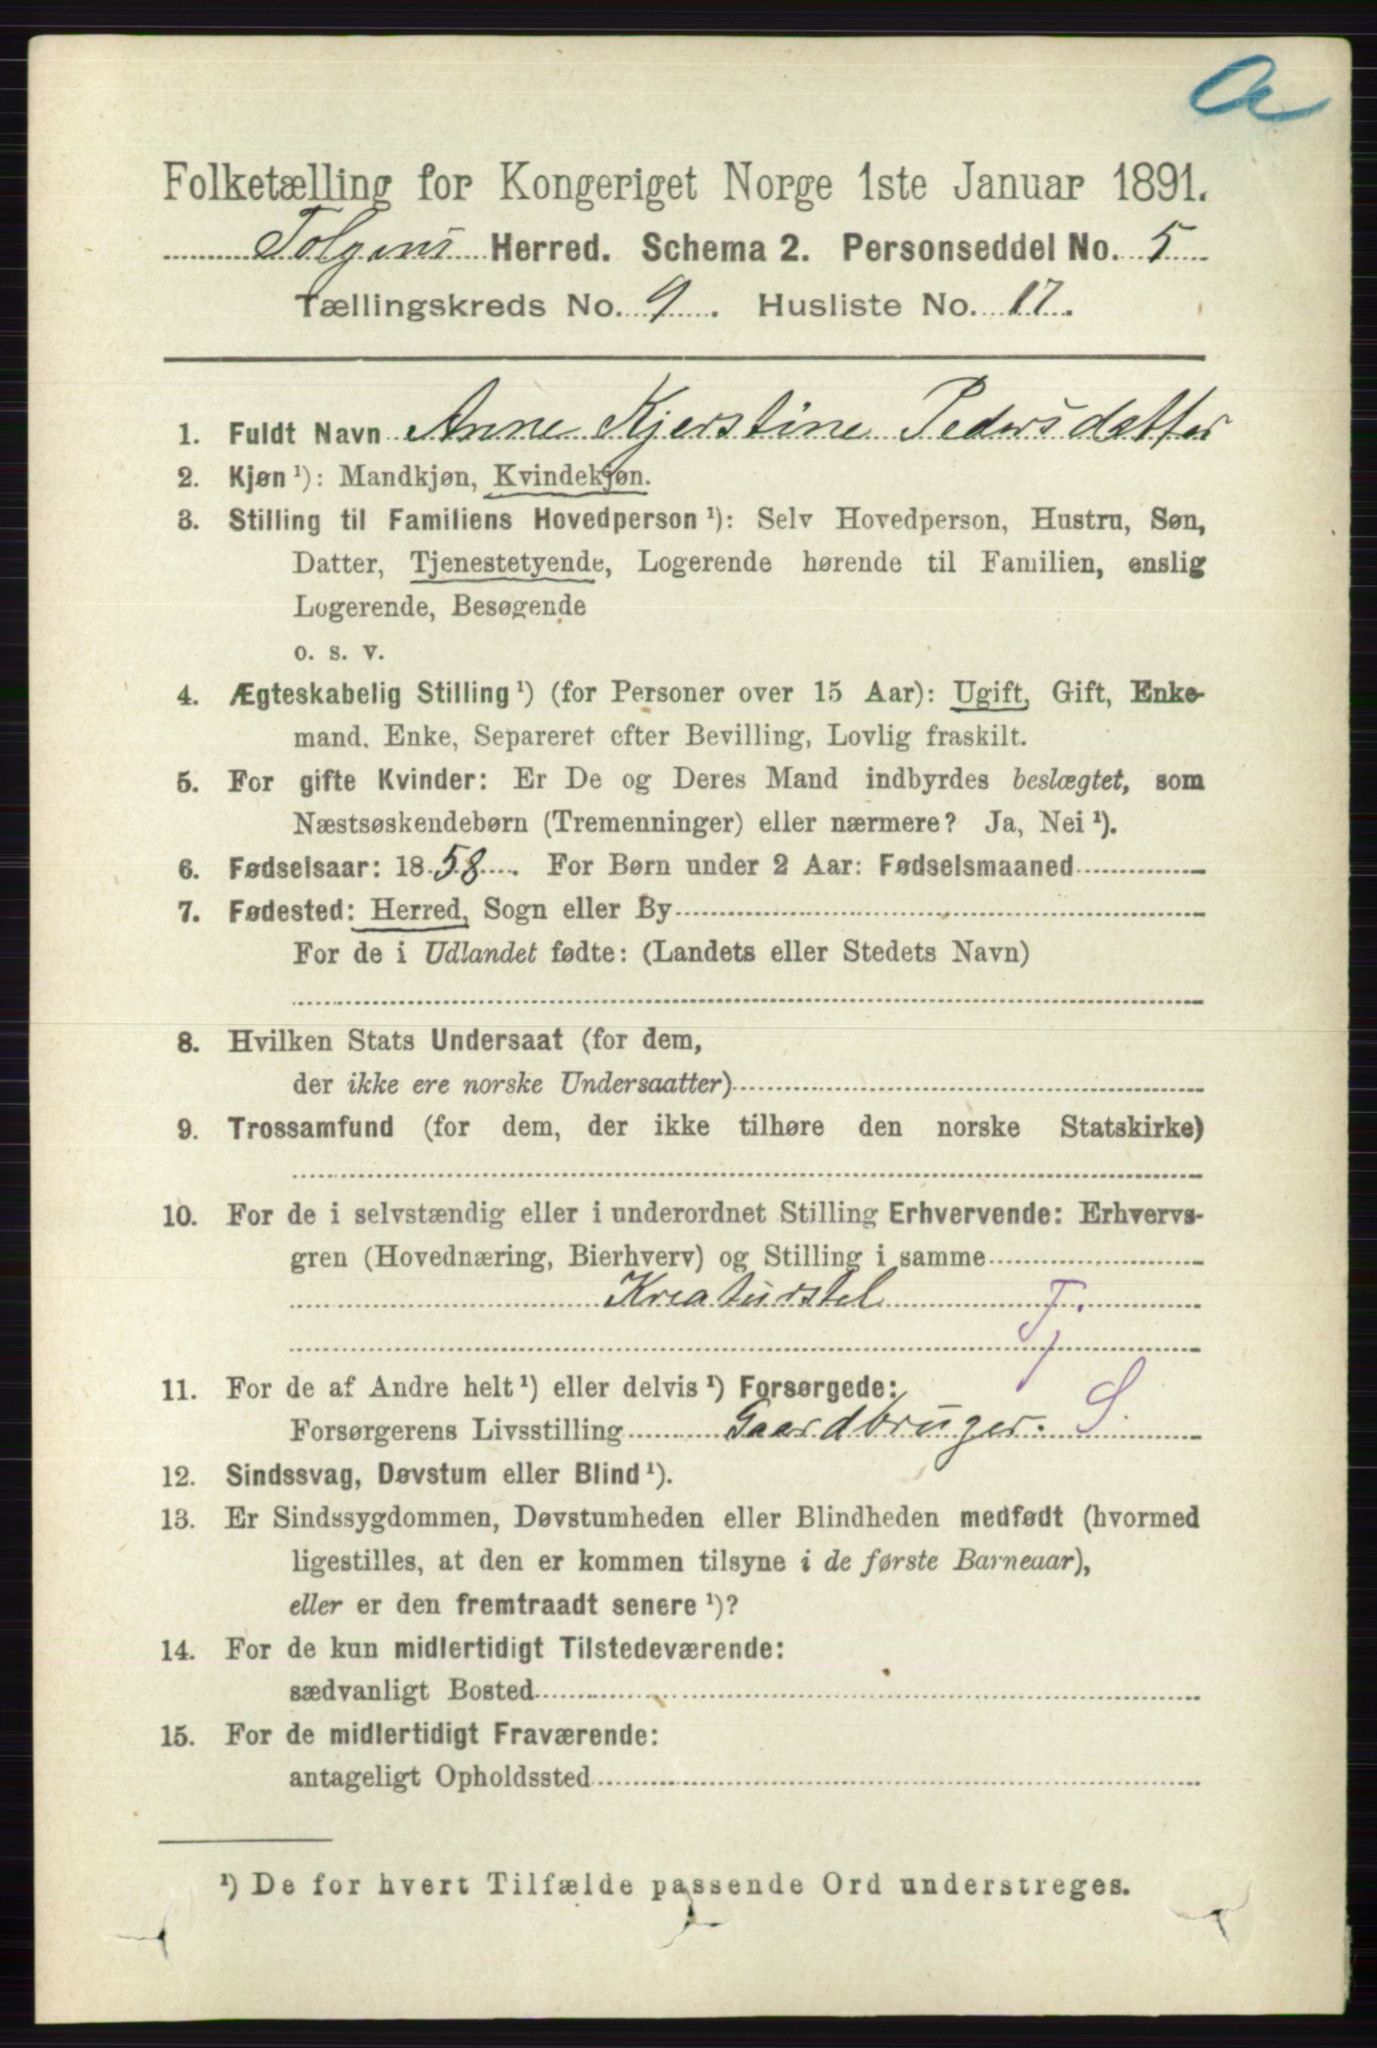 a
Folketælling for Kongeriget Norge 1ste Januar 1891.
Tolgens Herred. Schema 2. Personseddel No. 5
Tællingskreds No. 9. Husliste No. 17.
1. Fuldt Navn Anne Kjerstine Pedersdatter
2. Kjøn ¹): Mandkjøn, Kvindekjøn.
3. Stilling til Familiens Hovedperson ¹): Selv Hovedperson, Hustru, Søn,
Datter, Tjenestetyende, Logerende hørende til Familien, enslig
Logerende, Besøgende
o. s. v.
4. Ægteskabelig Stilling ¹) (for Personer over 15 Aar): Ugift, Gift, Enke-
mand, Enke, Separeret efter Bevilling, Lovlig fraskilt.
5. For gifte Kvinder: Er De og Deres Mand indbyrdes beslægtet, som
Næstsøskendebørn (Tremenninger) eller nærmere? Ja, Nei ¹).
6. Fødselsaar: 1858. For Børn under 2 Aar: Fødselsmaaned
7. Fødested: Herred, Sogn eller By
For de i Udlandet fødte: (Landets eller Stedets Navn)
8. Hvilken Stats Undersaat (for dem,
der ikke ere norske Undersaatter)
9. Trossamfund (for dem, der ikke tilhøre den norske Statskirke)
10. For de i selvstændig eller i underordnet Stilling Erhvervende: Erhvervs-
gren (Hovednæring, Bierhverv) og Stilling i samme
Kreaturstel Tj.
11. For de af Andre helt ¹) eller delvis ¹) Forsørgede:
Forsørgerens Livsstilling Gaardbruger. S.
12. Sindssvag, Døvstum eller Blind ¹).
13. Er Sindssygdommen, Døvstumheden eller Blindheden medfødt (hvormed
ligestilles, at den er kommen tilsyne i de første Barneaar),
eller er den fremtraadt senere ¹)?
14. For de kun midlertidigt Tilstedeværende:
sædvanligt Bosted
15. For de midlertidigt Fraværende:
antageligt Opholdssted
¹) De for hvert Tilfælde passende Ord understreges.